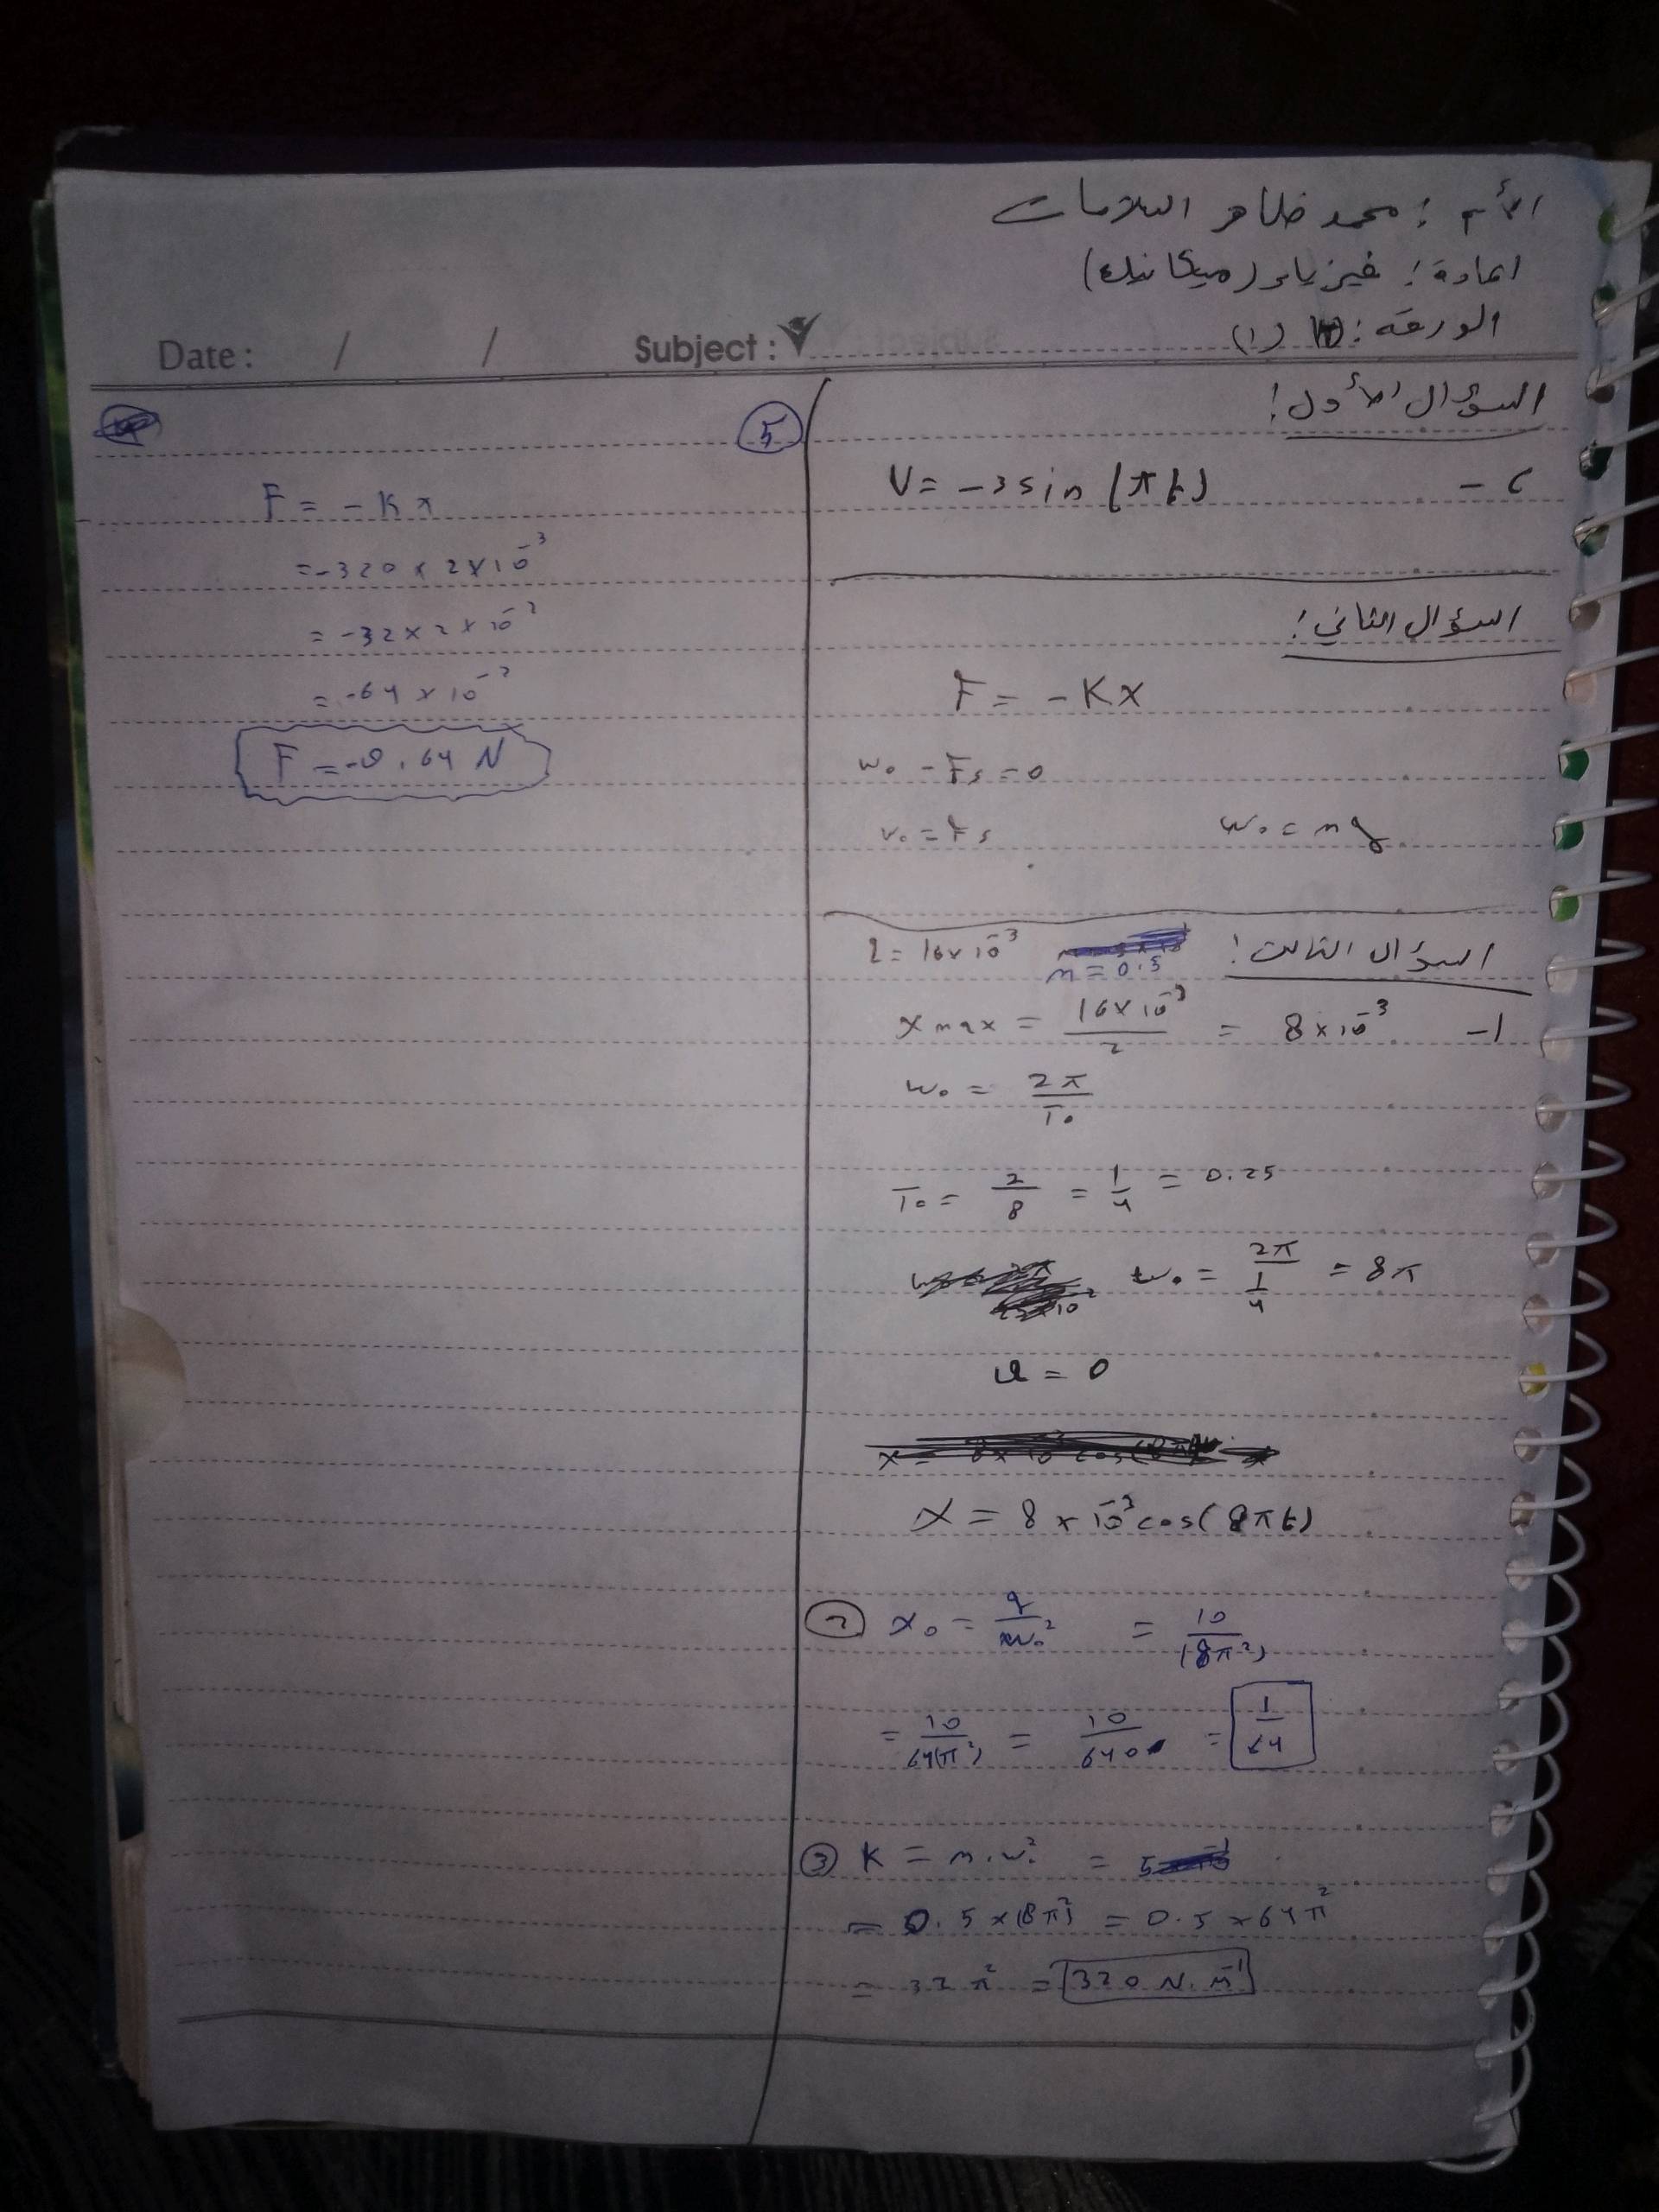 الأسم : محمد ظاهر السلامات
المادة : فيزياء (ميكانيك)
الورقة : (1)
Date : / / Subject :
السؤال الأول :
V = -3 sin (πt) - c
السؤال الثاني :
F = - Kx
w₀ - Fs = 0
w₀ = Fs w₀ = mg
السؤال الثالث : m = 0.5 L = 16×10⁻³
1- x max = 16×10⁻³ / 2 = 8×10⁻³
w₀ = 2π / T₀
T₀ = 2/8 = 1/4 = 0.25
w₀ = 2π / 1/4 = 8π
φ = 0
X = 8 × 10⁻³ cos(8πt)
② x₀ = g / w₀² = 10 / (8π²)
= 10 / 64(π²) = 10 / 640 = 1/64
③ K = m.w₀² = 5
= 0.5 × (8π²) = 0.5 × 64π²
= 32π² = 320 N.m⁻¹
⑤
F = - Kx
= -320 × 2×10⁻³
= -32×2×10⁻²
= -64 × 10⁻²
F = -0.64 N